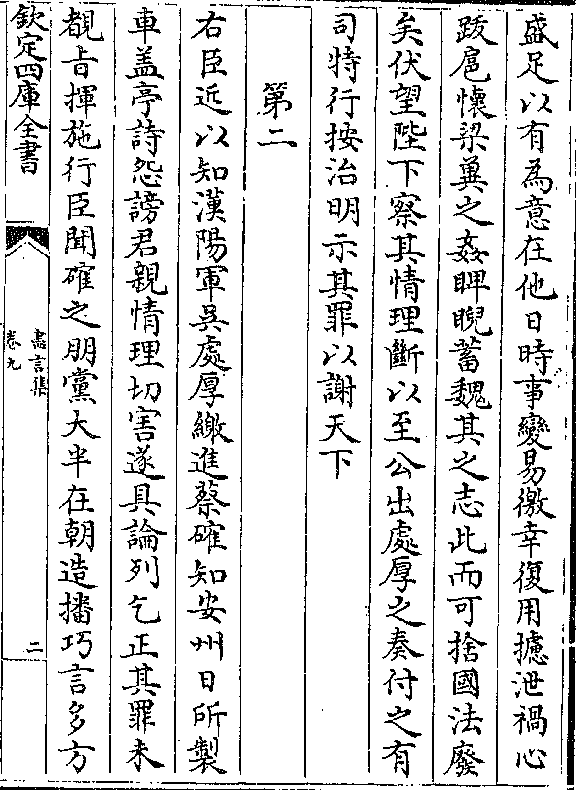 盛足以有為意在他日時事變易徼幸復用攄泄禍心
跋扈懷梁冀之姦睥睨蓄魏其之志此而可捨國法廢
矣伏望陛下察其情理斷以至公出處厚之奏付之有
司特行按治明示其罪以謝天下
第二
右臣近以知漢陽軍吳處厚繳進蔡確知安州日所製
車盖亭詩怨謗君親情理切害遂具論列乞正其罪未
覩㫖揮施行臣聞確之朋黨大半在朝造播巧言多方
欽定四庫全書
盡言集
卷九
二